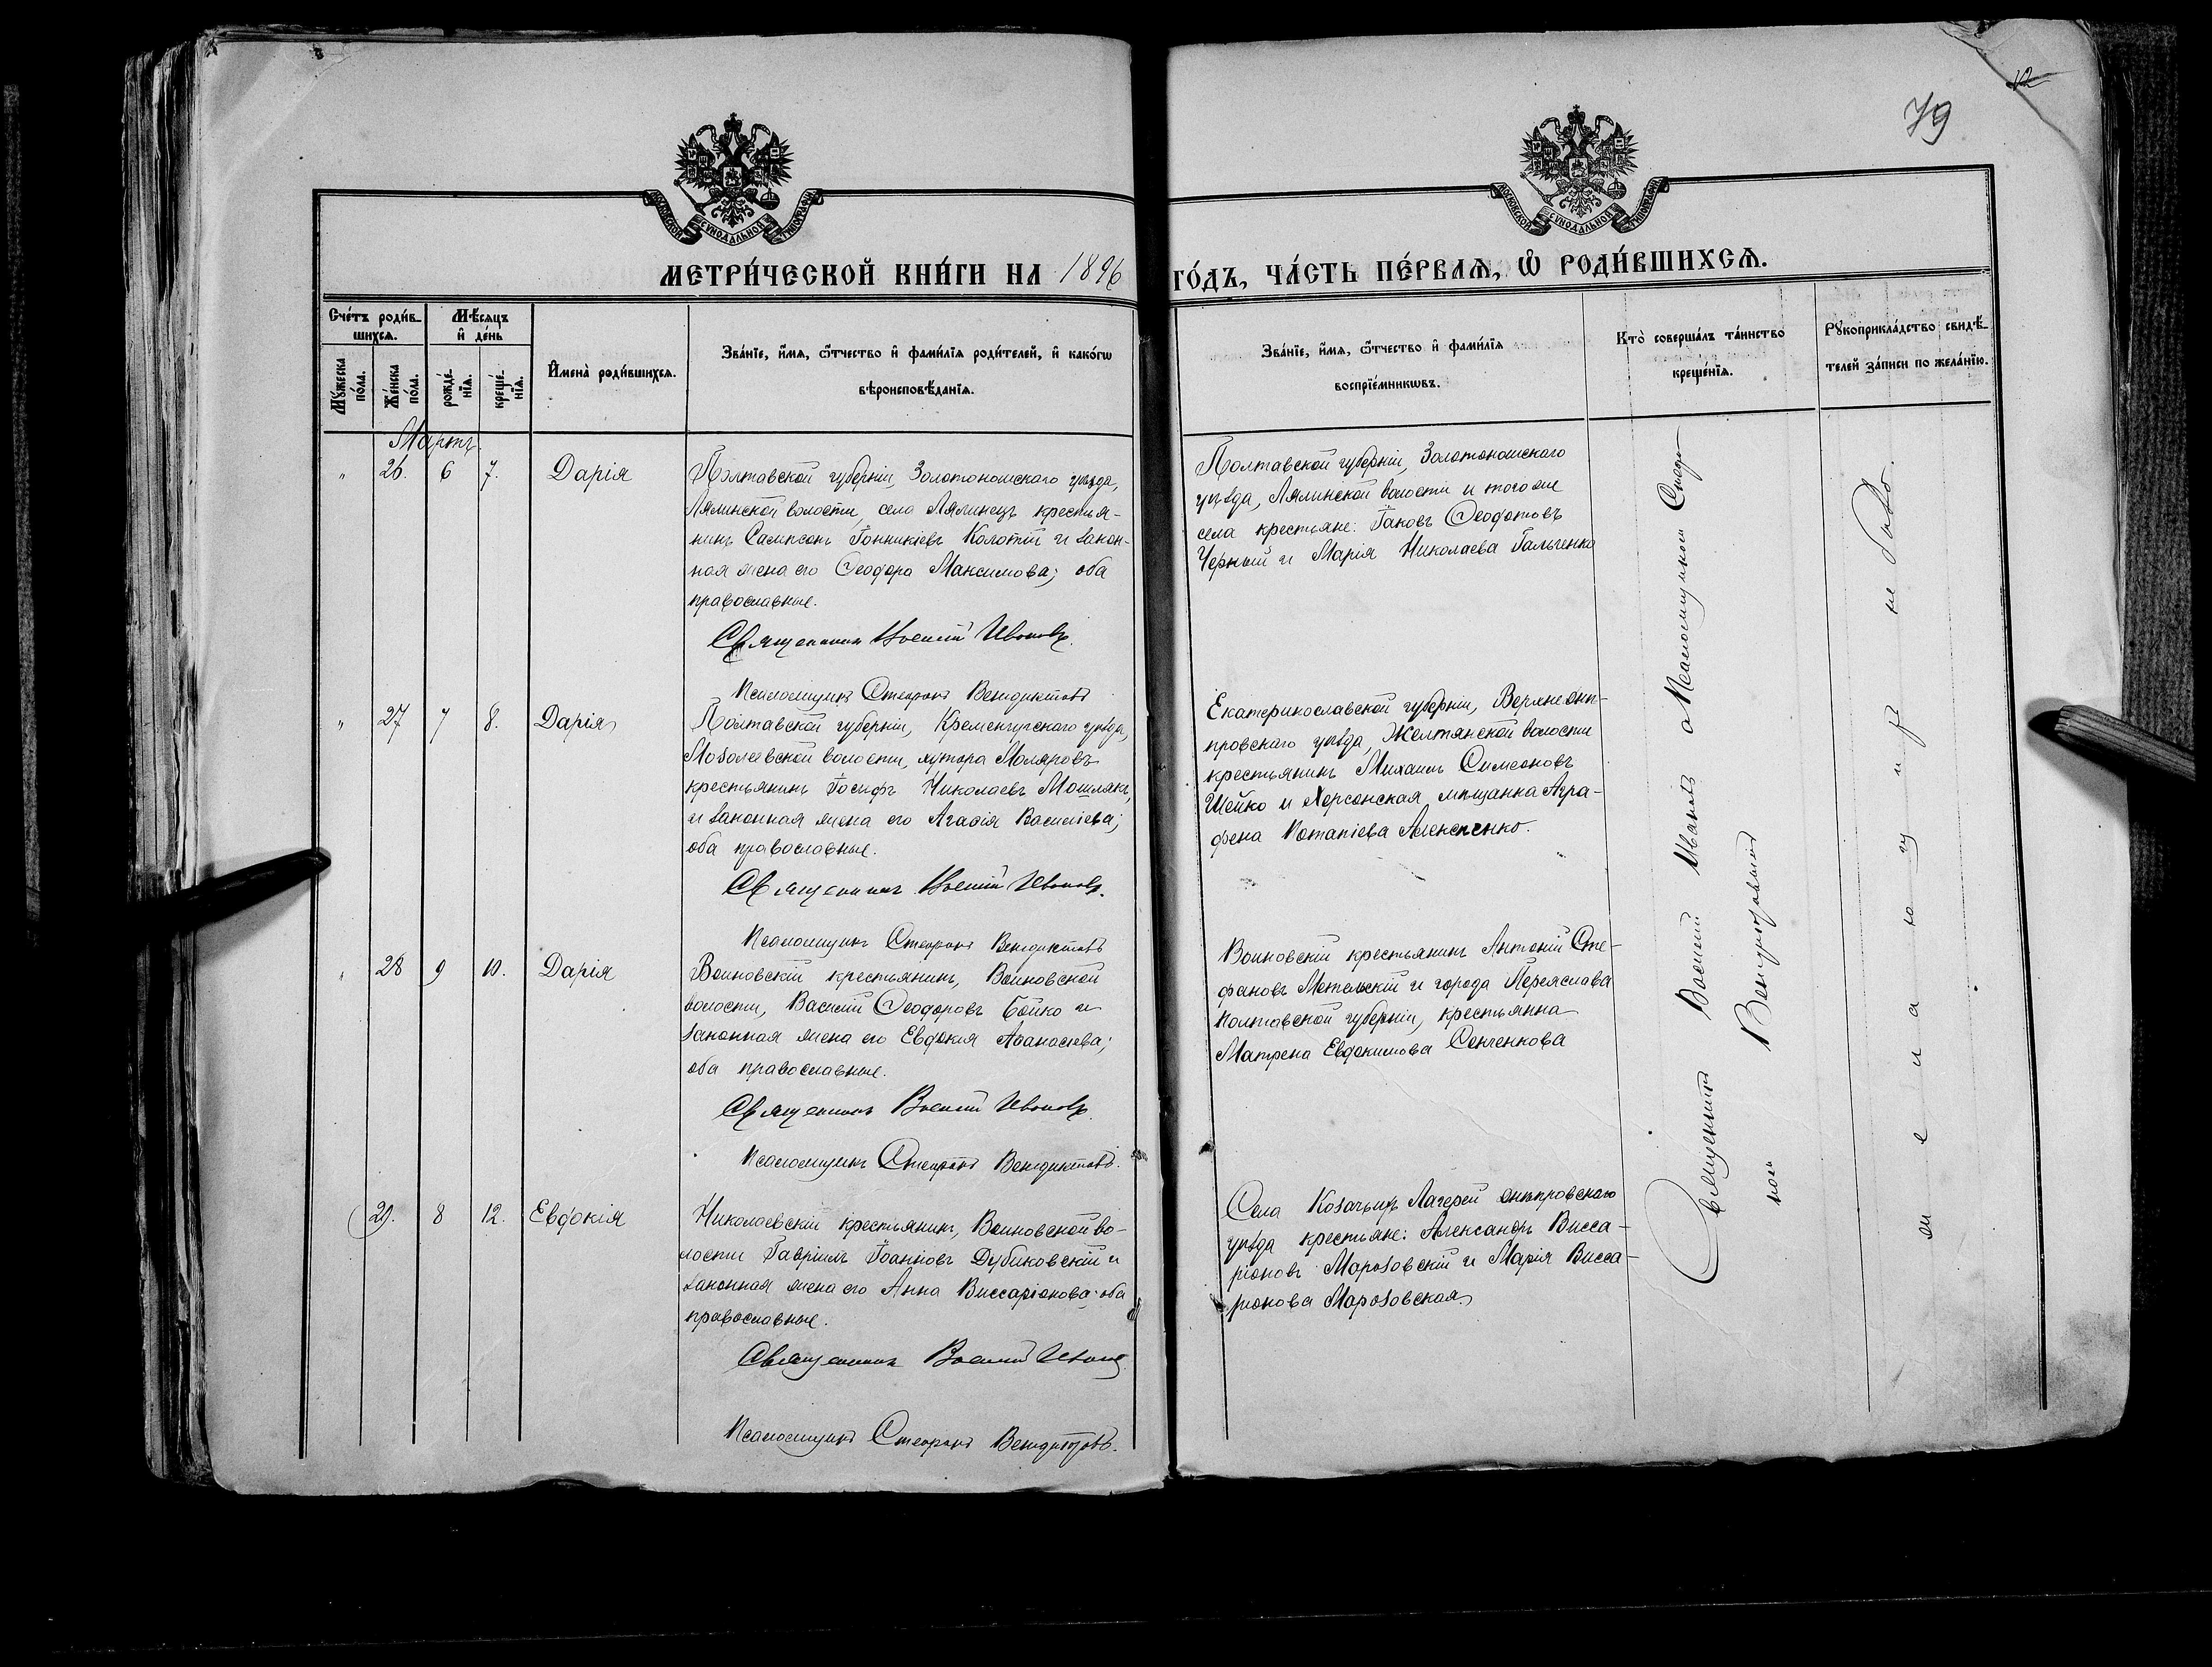 79
МЕТРИ́ЧЕСКОЙ КНИ́ГИ НА 1896 ГО́ДЪ, ЧА́СТЬ ПЕ́РВАЯ, Ѽ РОДИ́ВШИХСЯ.
МОСКОВСКОЙ СѴНОДАЛЬНОЙ ТИПОГРАФІИ
МОСКОВСКОЙ СѴНОДАЛЬНОЙ ТИПОГРАФІИ
Сче́тъ роди́в-
шихся.
Мѣ́сяцъ
и҆ де́нь
Мꙋ́жеска
по́ла.
Же́нска
по́ла.
рожде́-
нїя.
креще́-
нїя.
И҆мена̀ роди́вшихся.
Зва́нїе, и҆́мя, ѻ҆́тчество и҆ фами́лїя роди́телей, и҆ како́гѡ
вѣроисповѣ́данїя.
Зва́нїе, и҆́мя, ѻ҆́тчество и҆ фами́лїя
воспрїе́мникѡвъ.
Кто̀ соверша́лъ та́инство
креще́нїя.
Рꙋкоприкла́дство свидѣ́-
телей за́писи по жела́нїю.
Мартъ
" 26. 6 7. Дарія
Полтавской губерніи, Золотоношскаго уѣзда,
Лялинской волости, села Лялинецъ крестья-
нинъ Сампсонъ Іоанникіевъ Колотій и закон-
ная жена его Ѳеодора Максимова; оба
православные.
Священникъ Василій Ивановъ.
Псаломщикъ Стефанъ Венедиктовъ
Полтавской губерніи, Золотоношскаго
уѣзда, Лялинской волости и тогоже
села крестьяне: Іаковъ Ѳеодотовъ
Черный и Марія Николаева Гальченко
" 27 7 8. Дарія
Полтавской губерніи, Кременчугскаго уѣзда,
волости, хутора Моляровъ
крестьянинъ Іосифъ Николаевъ Мошлякъ,
и законная жена его Агаѳія Василіева;
оба православные.
Священникъ Василій Ивановъ.
Псаломщикъ Стефанъ Венедиктовъ
Екатеринославской губерніи, Верхнеднѣ-
провскаго уѣзда, Желтянской волости
крестьянинъ Михаилъ Симеоновъ
Шейко и Херсонская мѣщанка Агра-
фена Потапіева Алексѣенко.
" 28 9 10. Дарія
Воиновскій крестьянинъ, Воиновской
волости, Василій Ѳеодоровъ Бойко и
законная жена его Евдокія Аѳанасіева;
оба православные.
Священникъ Василій Ивановъ.
Псаломщикъ Стефанъ Венедиктовъ.
Воиновскій крестьянинъ Антоній Сте-
фановъ Мотельскій и города Переяслава
Полтавской губерніи, крестьянка
Матрена Евдокимова Сенченкова
29. 8 12. Евдокія
Николаевскій крестьянинъ, Воиновской во-
лости Гавріилъ Іоанновъ Дубиковскій и
законная жена его Анна Виссаріонова; оба
православные.
Священникъ Василій Ивановъ
Псаломщикъ Стефанъ Венедиктовъ.
Села Козачьихъ Лагерей Днѣпровскаго
уѣзда крестьяне: Александръ Висса-
ріоновъ Марозовскій и Марія Висса-
ріонова Марозовская.
Священникъ Василій Ивановъ съ Псаломщикомъ Стефа-
номъ Венедиктовымъ
не было.